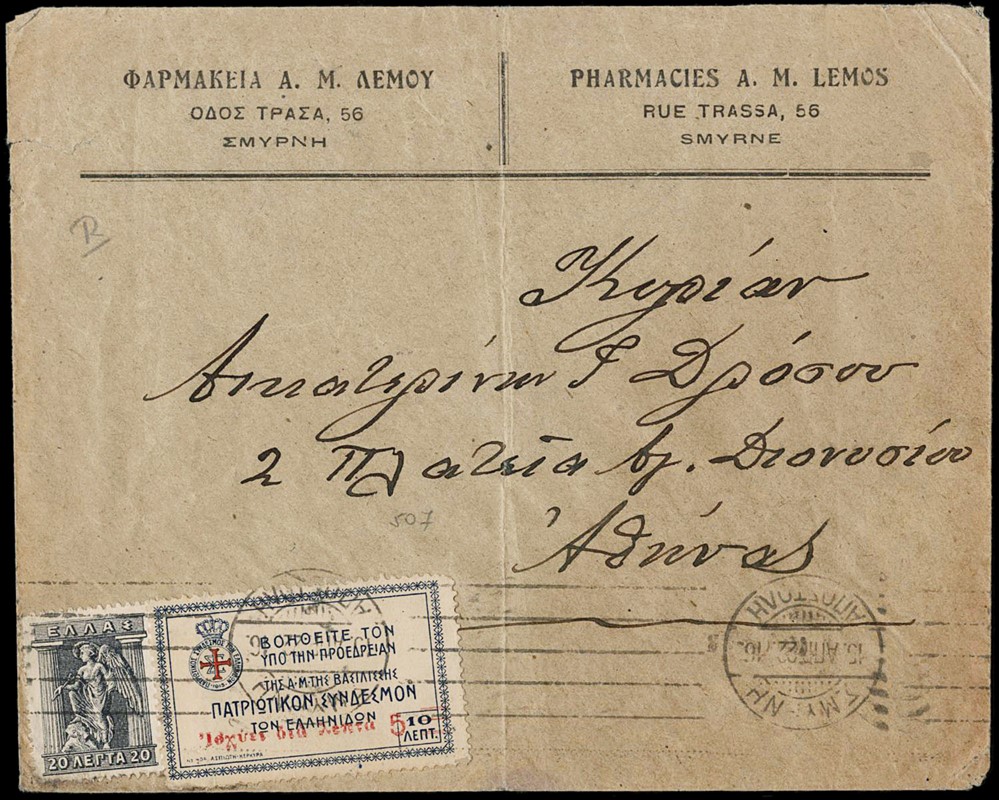 ΦΑΡΜΑΚΕΙΑ Α. Μ. ΛΕΜΟΥ
ΟΔΟΣ ΤΡΑΣΑ, 56
ΣΜΥΡΝΗ
PHARMACIES A. M. LEMOS
RUE TRASSA, 56
SMYRNE
R
Κυρίαν
Αικατερίνην Γ Δρόσου
2 Πλατεία Αγ. Διονυσίου
Ἀθήνας
507
ΕΛΛΑΣ
20 ΛΕΠΤΑ 20
ΒΟΗΘΕΙΤΕ ΤΟΝ
ΥΠΟ ΤΗΝ ΠΡΟΕΔΡΕΙΑΝ
ΤΗΣ Α·Μ·ΤΗΣ ΒΑΣΙΛΙΣΣΗΣ
ΠΑΤΡΙΩΤΙΚΟΝ ΣΥΝΔΕΣΜΟΝ
ΤΩΝ ΕΛΛΗΝΙΔΩΝ
5 10
ΛΕΠΤ.
ΑΠΟΣΤΟΛΗ
ΣΜΥΡΝΗ